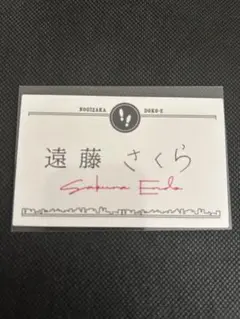 NOGIZAKA DOKO-E
遠藤 さくら
Sakura Endo